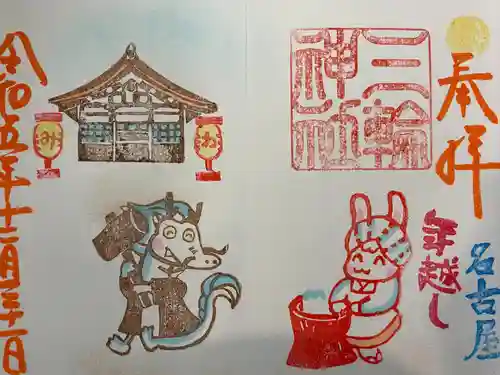 奉拝
三輪
神社
年越し
名古屋
み
わ
令和五年十二月三十一日